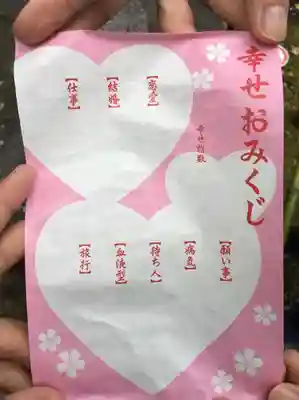 幸せおみくじ
幸せ指数
【恋愛】
【結婚】
【仕事】
【願い事】
【病気】
【待ち人】
【血液型】
【旅行】